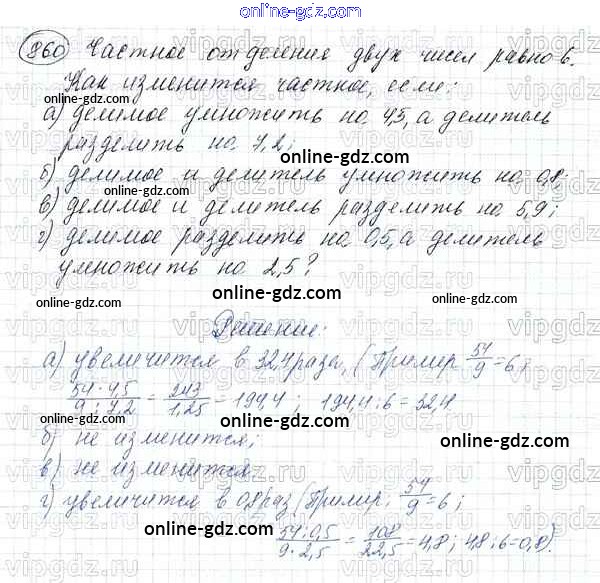 online-gdz.com
860 Частное от деления двух чисел равно 6.
Как изменится частное, если:
online-gdz.com
а) делимое умножить на 4,5, а делитель
разделить на 7,2;
online-gdz.com
б) делимое и делитель умножить на 0,8;
online-gdz.com
в) делимое и делитель разделить на 5,9;
г) делимое разделить на 0,5, а делитель
online-gdz.com
умножить на 2,5?
online-gdz.com
Решение:
online-gdz.com
а) увеличится в 32,4 раза, (Пример 54/9 = 6;
54·4,5/9:7,2 = 243/1,25 = 194,4; 194,4:6=32,4
online-gdz.com
б) не изменится;
online-gdz.com
в) не изменится
online-gdz.com
г) увеличится в 0,8 раз (Пример: 54/9 = 6;
54:0,5/9·2,5 = 108/22,5 = 4,8; 4,8:6=0,8).
online-gdz.com
online-gdz.com